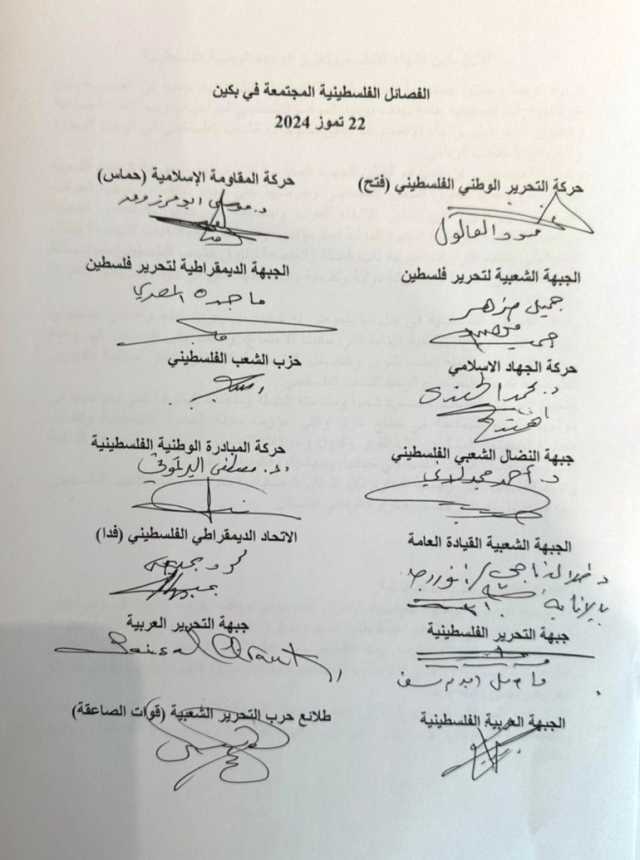 الفصائل الفلسطينية المجتمعة في بكين
22 تموز 2024
حركة التحرير الوطني الفلسطيني (فتح)
محمود العالول
حركة المقاومة الإسلامية (حماس)
د. موسى ابو مرزوق
الجبهة الشعبية لتحرير فلسطين
جميل مزهر
الجبهة الديمقراطية لتحرير فلسطين
ماجدة المصري
حركة الجهاد الاسلامي
د. محمد الهندي
حزب الشعب الفلسطيني
جبهة النضال الشعبي الفلسطيني
د. أحمد مجدلاني
حركة المبادرة الوطنية الفلسطينية
د. مصطفى البرغوثي
الجبهة الشعبية القيادة العامة
د. طلال ناجي / انور رجا
بالانابة
الاتحاد الديمقراطي الفلسطيني (فدا)
جبهة التحرير الفلسطينية
جبهة التحرير العربية
الجبهة العربية الفلسطينية
طلائع حرب التحرير الشعبية (قوات الصاعقة)